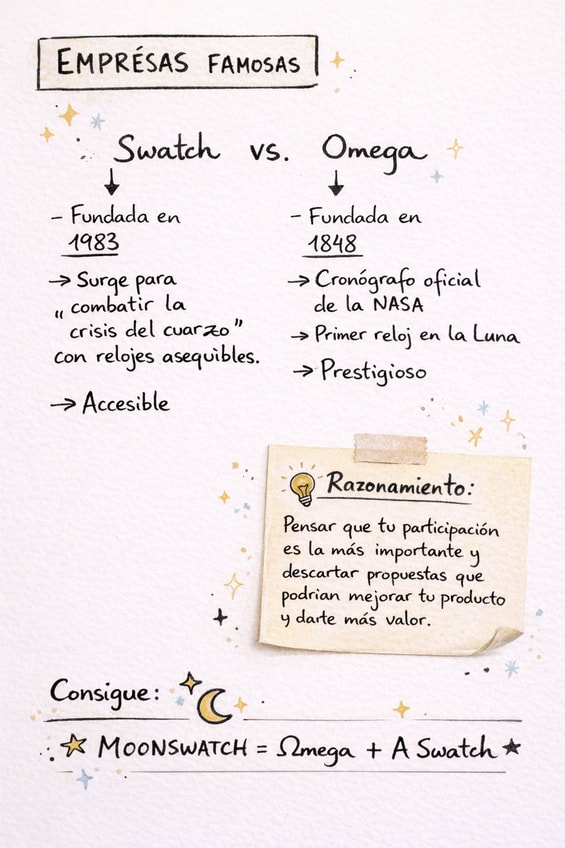 EMPRÉSAS FAMOSAS
Swatch vs. Omega
– Fundada en
1983
→ Surge para
„ combatir la
crisis del cuarzo”
con relojes asequibles.
→ Accesible
– Fundada en
1848
→ Cronógrafo oficial
de la NASA
→ Primer reloj en la Luna
→ Prestigioso
Razonamiento:
Pensar que tu participación
es la más importante y
descartar propuestas que
podrian mejorar tu producto
y darte más valor.
Consigue:
MOONSWATCH = Ωmega + A Swatch